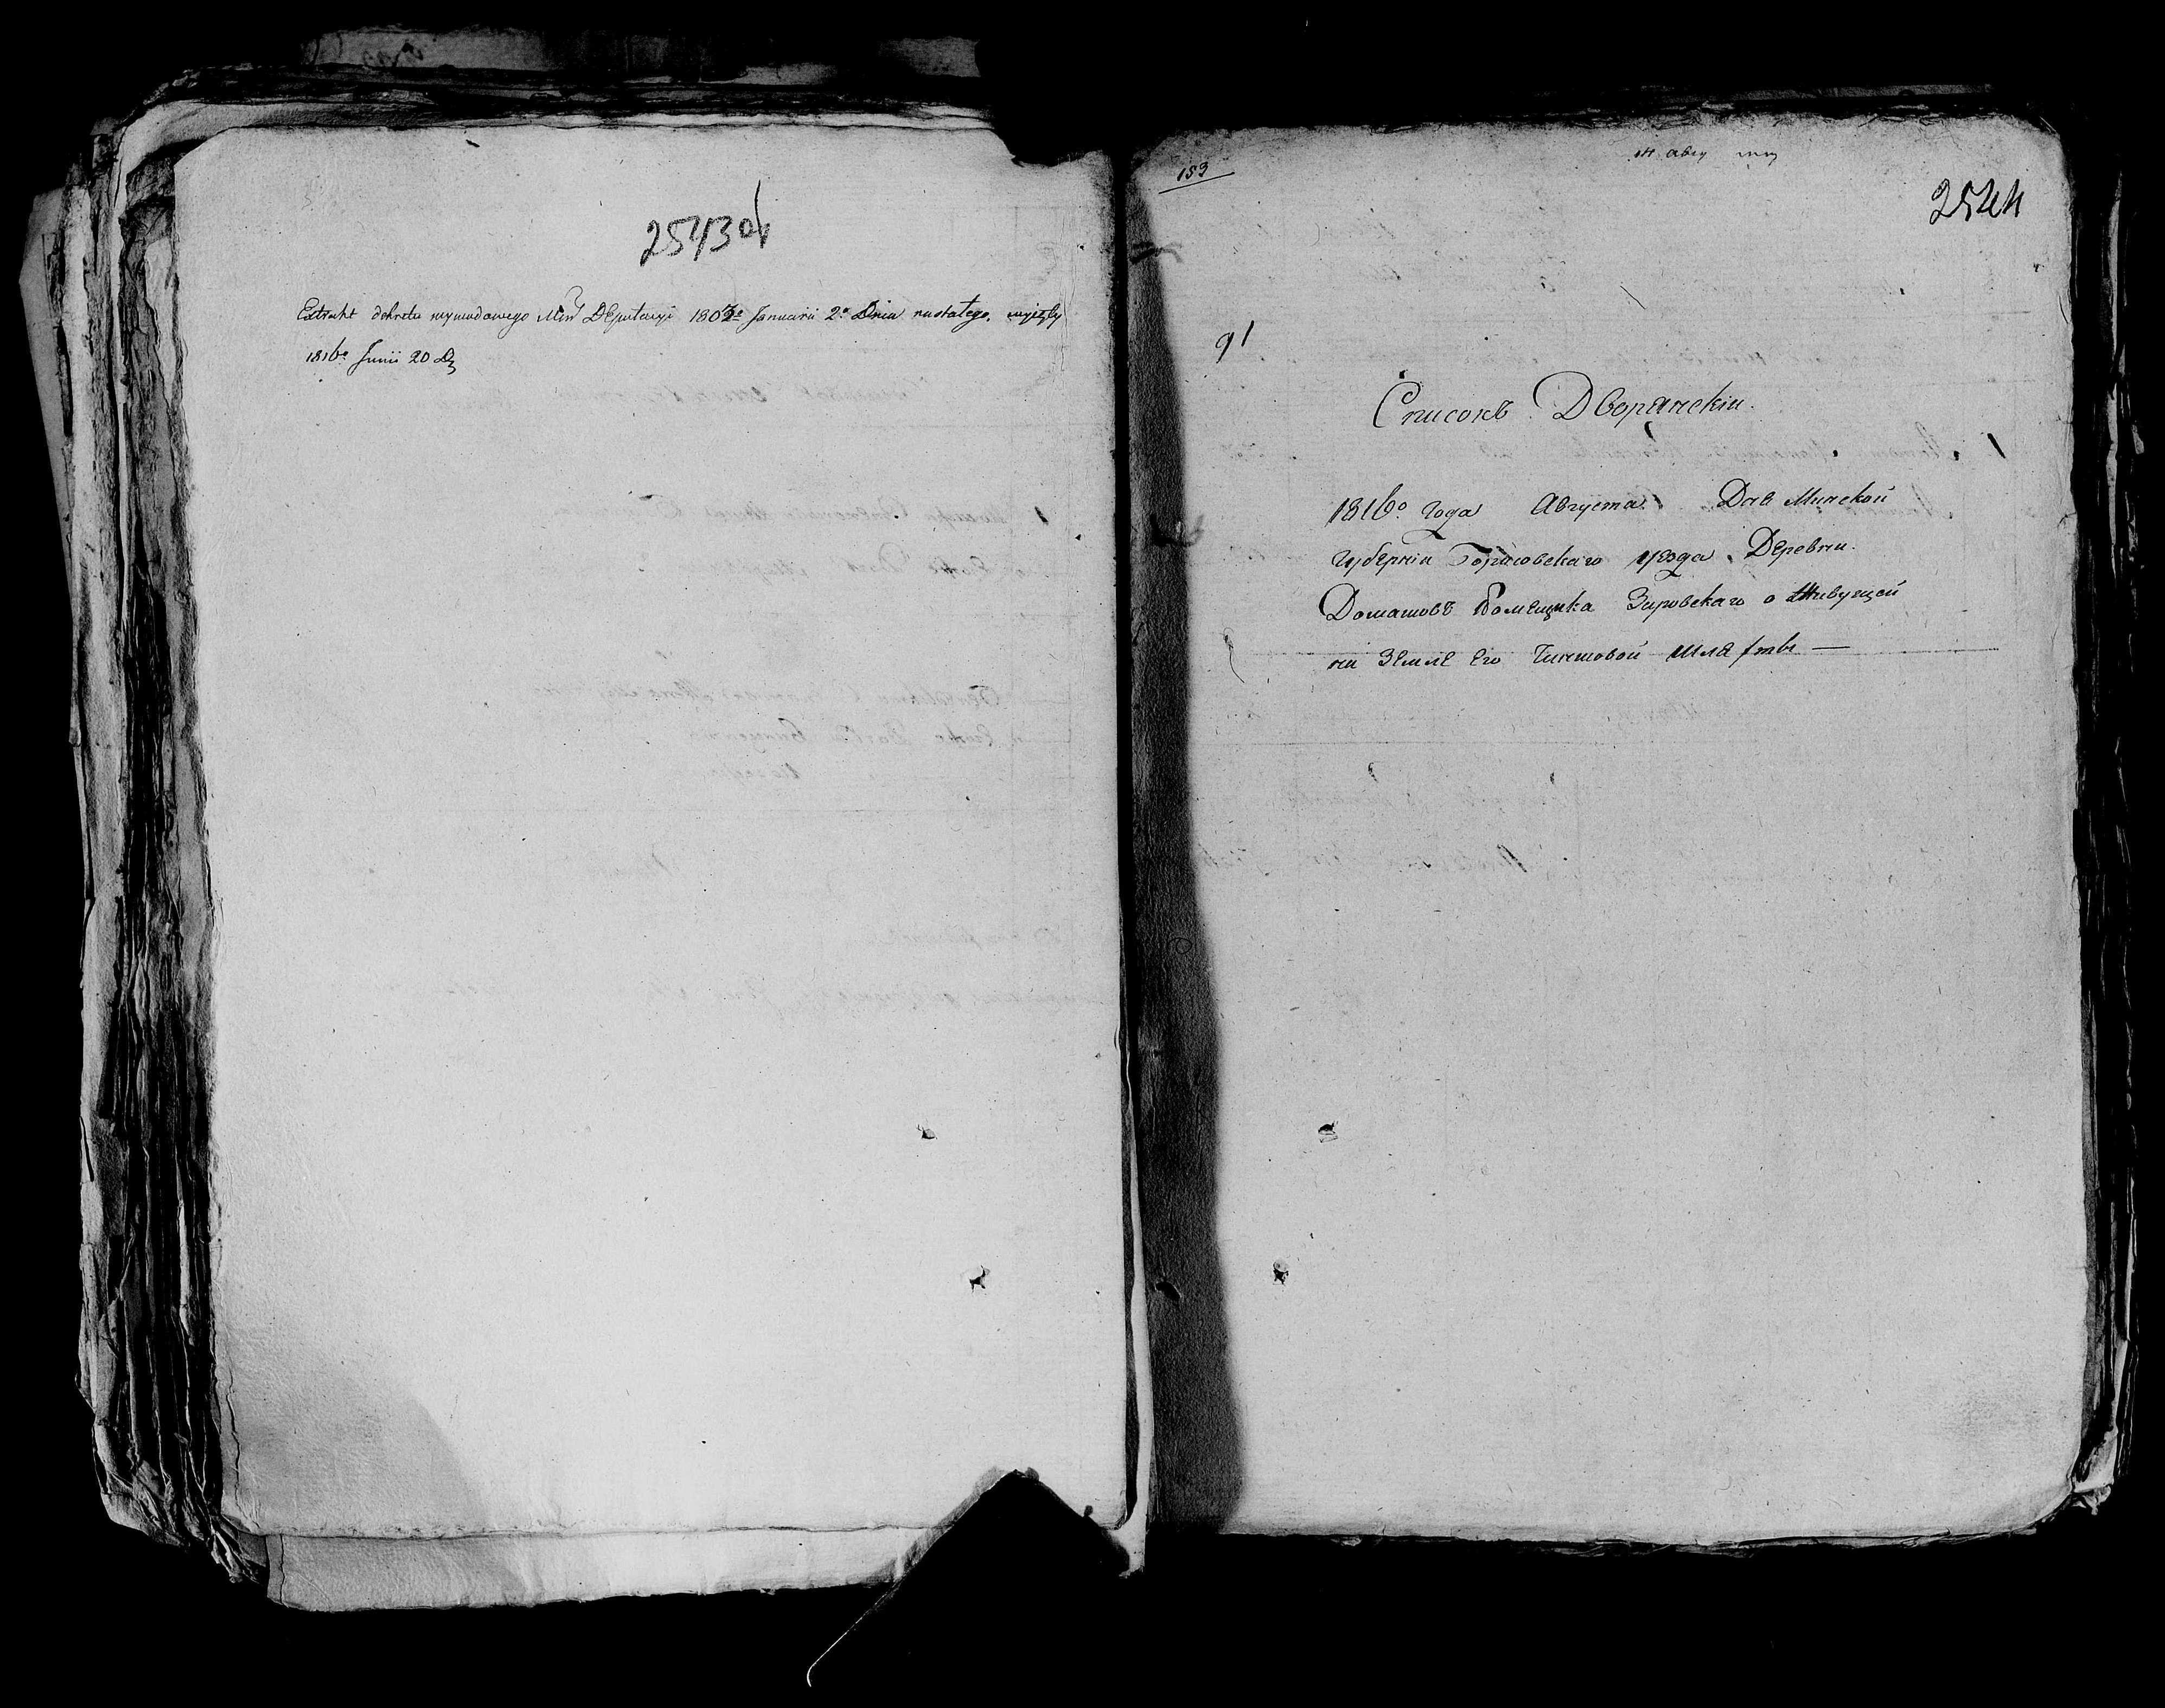 2543об
Extrakt dekretu wywodowego Miń Deputacyi 1802º Januarii 2º Dnia nastałego. wyięty
1816º Junii 20 D
153
14 авгу
2544
91
Списокъ Дворянскіи.
1816º года Августа Дня Минской
Губерніи Борисовскаго уезда Деревни.
Домашовъ Помещика Зировскаго о Живущей
на Земле Его Чиншовой Шляхты —